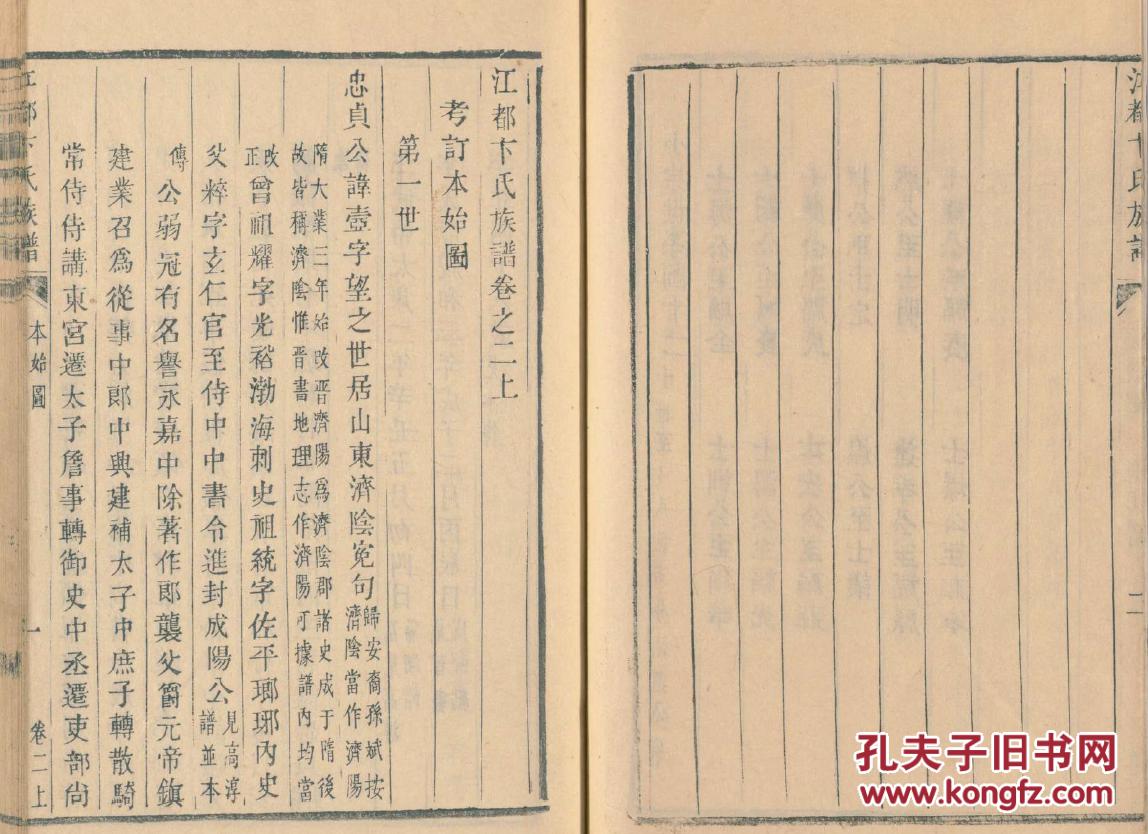 江都卞氏族譜
二
江都卞氏族譜卷之二上
考訂本始圖
第一世
忠貞公諱壼字望之世居山東濟陰寃句歸安裔孫斌按濟陰當作濟陽
隋大業三年始改晋濟陽爲濟陰郡諸史成于隋後故皆稱濟陰惟晋書地理志作濟陽可據譜内均當
改正曾祖耀字光裕渤海刺史祖統字佐平瑯琊内史
父粹字玄仁官至侍中中書令進封成陽公見高淳譜並本
傳公弱冠有名譽永嘉中除著作郎襲父爵元帝鎮
建業召爲從事中郎中興建補太子中庶子轉散騎
常侍侍講東宮遷太子詹事轉御史中丞遷吏部尙
江都卞氏族譜
本始圖
一
卷二上
孔夫子旧书网
www.kongfz.com